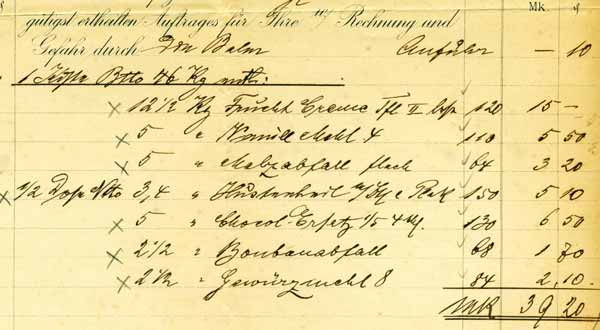 Mk. ₰
gütigst ertheilten Auftrages für Ihre w/ Rechnung und
Gefahr durch Die Bahn Anfuhr — 10
1 Kiste Btto 46 Kg mit:
× 12 1/2 Kg Frucht Creme Tfl II 120 15 —
× 5 " Mehl 4 110 5 50
× 5 " Malzabfall flach 64 3 20
× 1/2 Ntto 3,4 " 150 5 10
× 5 " Chocol-Ersatz 1/5 130 6 50
× 2 1/2 " Bonbonabfall 68 1 70
× 2 1/2 " Gewürzmehl 8 84 2,10.
MK 39 20